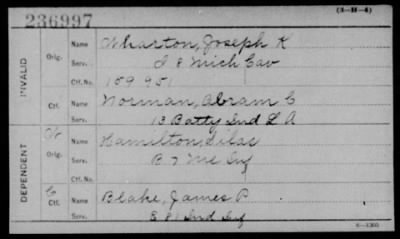 236997
(3-H-4)
INVALID
Orig.
Name Wharton, Joseph K
Serv. I 8 Mich Cav
Ctf. No. 159 951
Ctf.
Name Norman, Abram C
Serv. 13 Batty Ind L A
DEPENDENT
W
Orig.
Name Hamilton, Silas
Serv. B 7 Me Inf
Ctf. No.
C
Ctf.
Name Blake, James P
Serv. E 81 Ind Inf